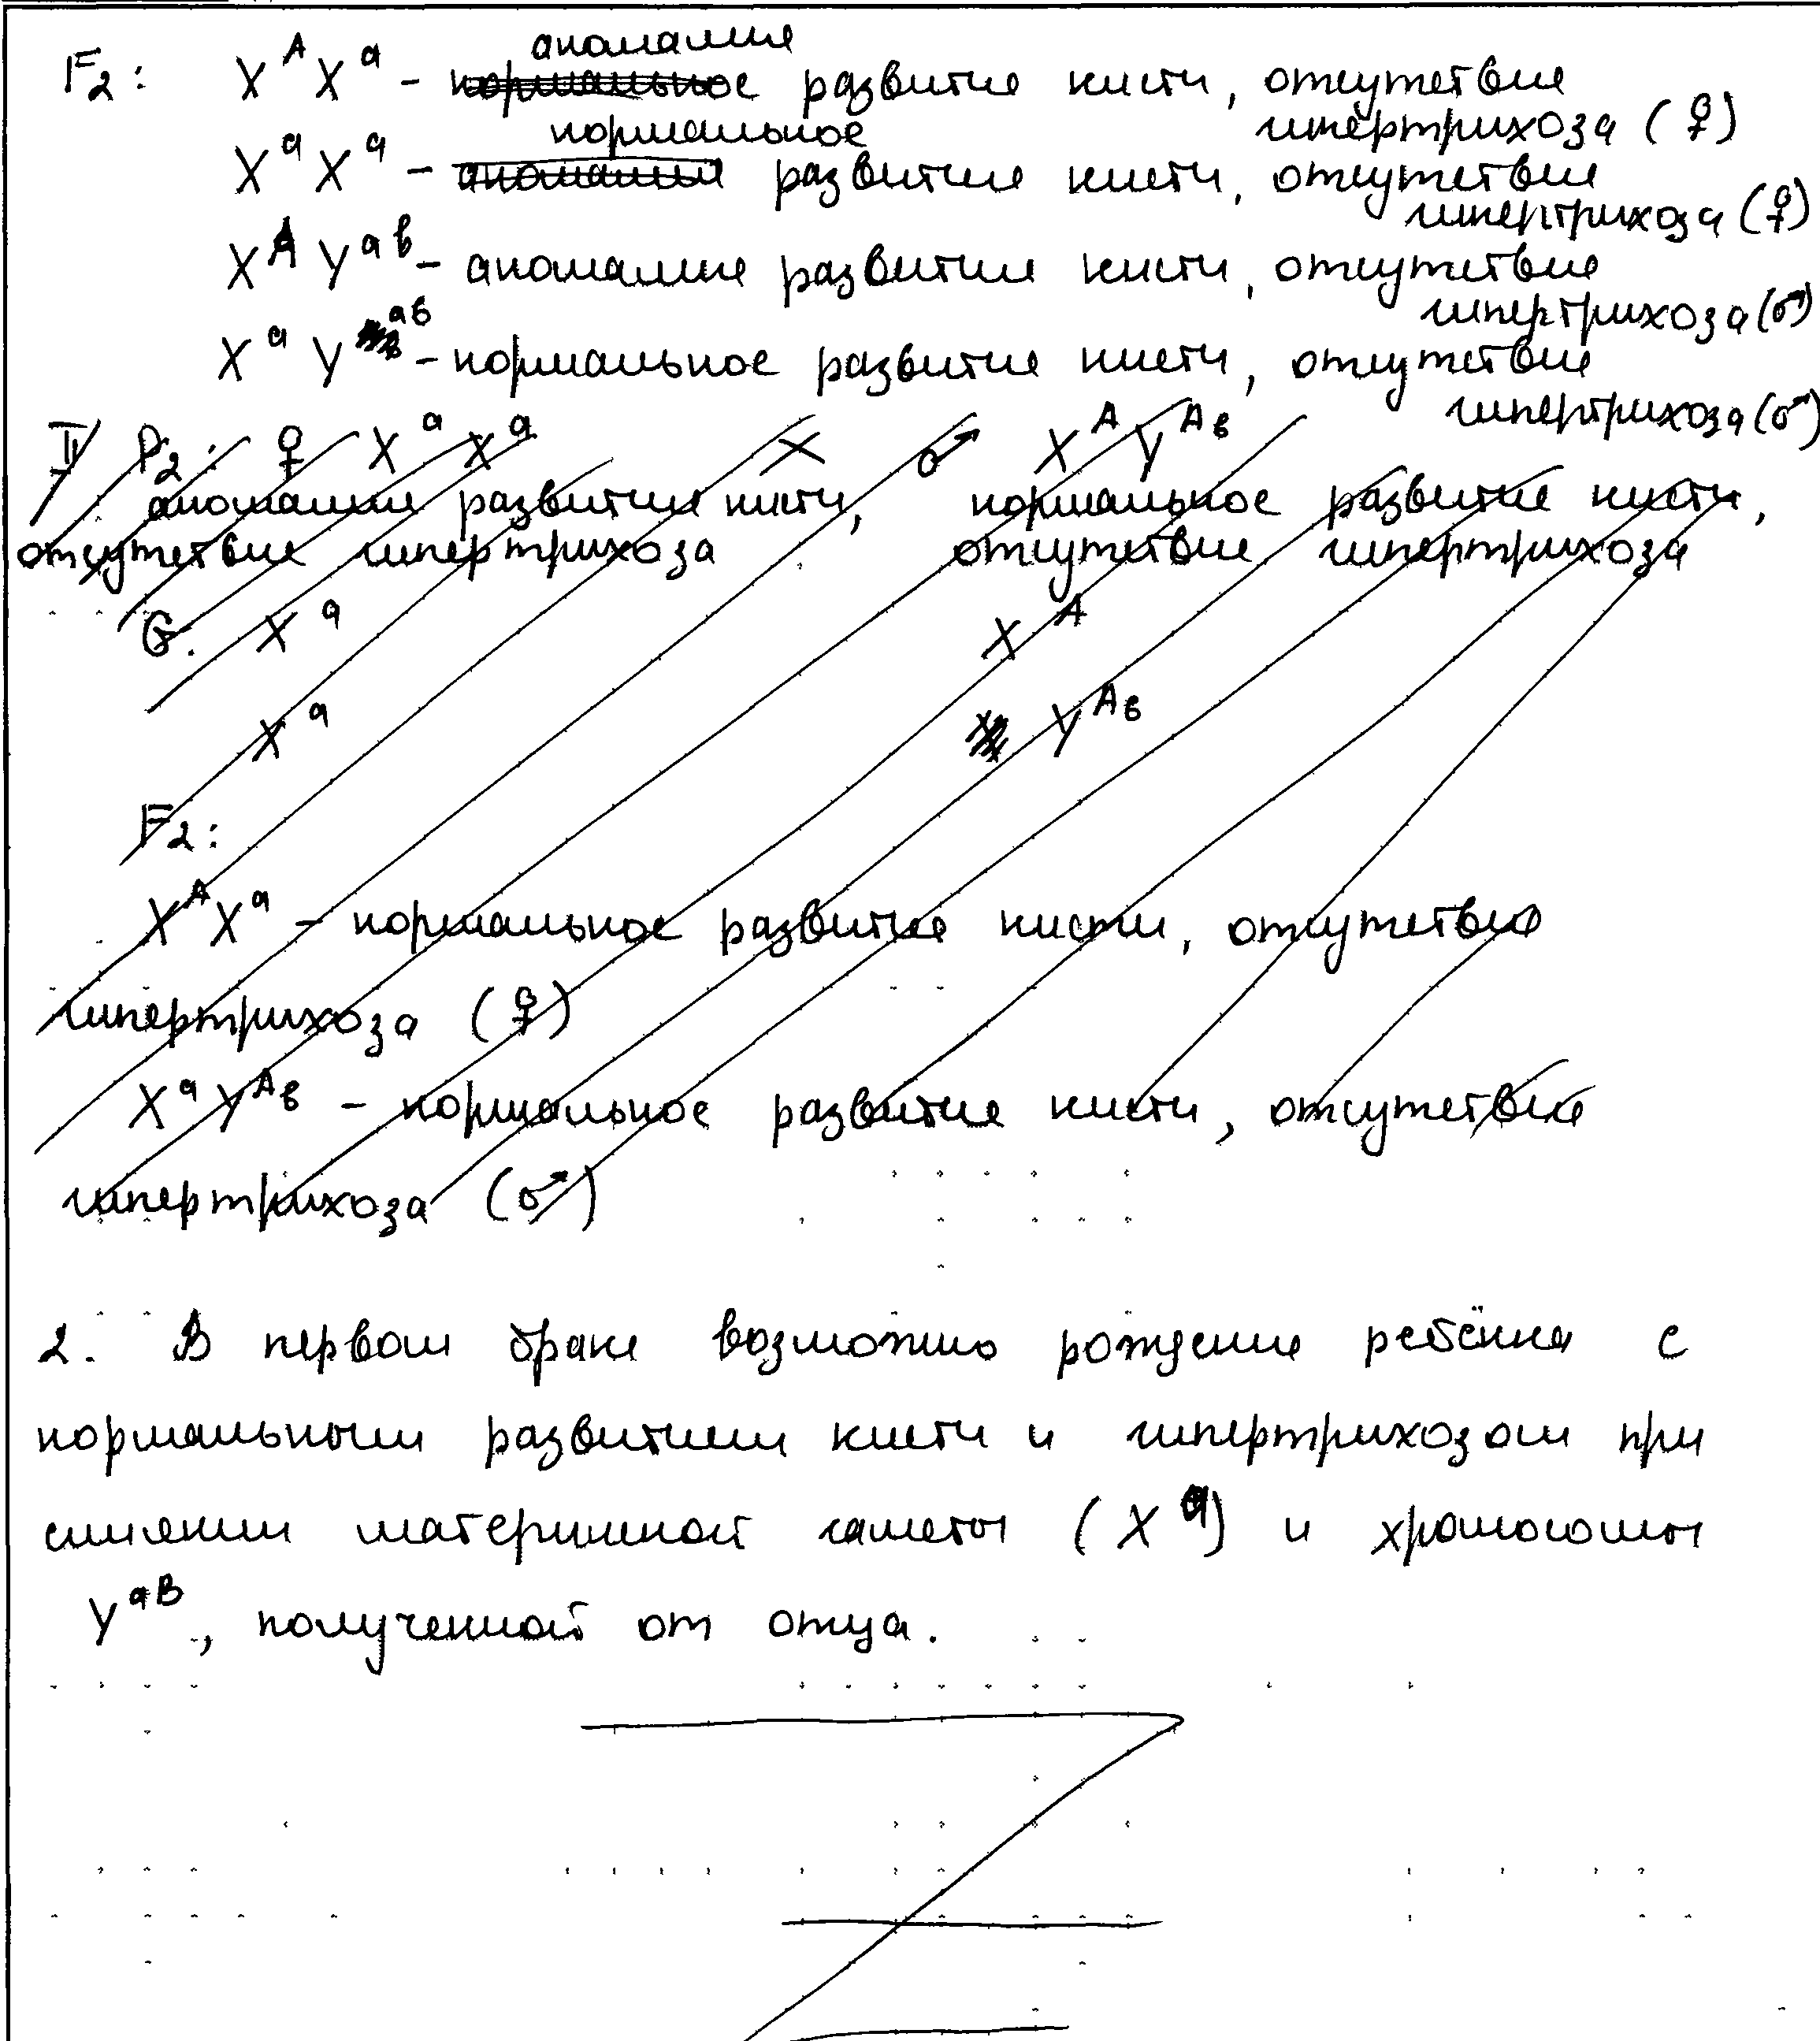 аномалия
F₂: X^A X^a - нормальное развития кисти, отсутствие
гипертрихоза (♀)
нормальное
X^a X^a - аномалия развитие кисти, отсутствие
гипертрихоза (♀)
X^A Y^ab - аномалия развития кисти, отсутствие
гипертрихоза (♂)
X^a Y^ab - нормальное развитие кисти, отсутствие
гипертрихоза (♂)
II P₂: ♀ X^a X^a × ♂ X^A Y^Ab
аномалия развития кисти, нормальное развитие кисти,
отсутствие гипертрихоза отсутствие гипертрихоза
G: X^a X^A
X^a Y^Ab
F₂:
X^A X^a - нормальное развитие кисти, отсутствие
гипертрихоза (♀)
X^a Y^Ab - нормальное развитие кисти, отсутствие
гипертрихоза (♂)
2. В первом браке возможно рождение ребёнка с
нормальным развитием кисти и гипертрихозом при
слиянии материнской гаметы (X^a) и хромосомы
Y^aB, полученной от отца.